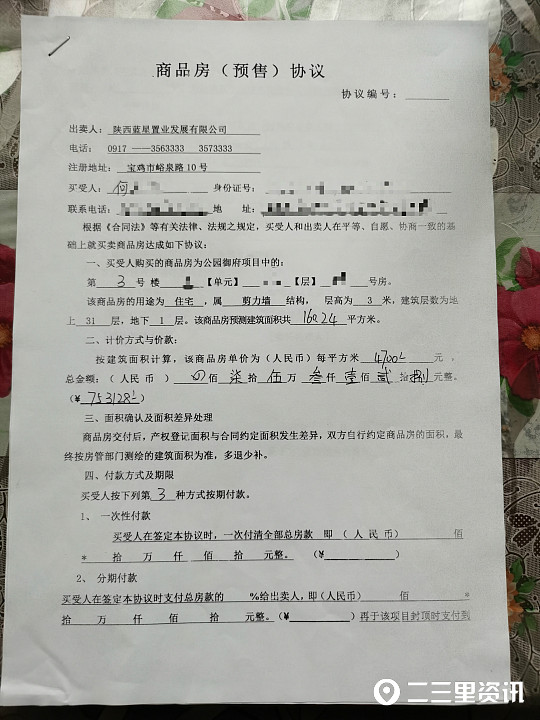 商品房（预售）协议
协议编号：
出卖人： 陕西蓝星置业发展有限公司
电话： 0917 ——3563333 3573333
注册地址： 宝鸡市峪泉路10号
买受人： 何 身份证号：
联系电话： 地 址：
根据《合同法》等有关法律、法规之规定，买受人和出卖人在平等、自愿、协商一致的基
础上就买卖商品房达成如下协议：
一、买受人购买的商品房为公园御府项目中的：
第 3 号 楼 【单元】 【层】 号房。
该商品房的用途为 住宅 ，属 剪力墙 结构， 层高为 3 米，建筑层数为地
上 31 层，地下 1 层。该商品房预测建筑面积共 160.24 平方米。
二、计价方式与价款：
按建筑面积计算，该商品房单价为（人民币）每平方米 4700 元 ，
总金额：（ 人民币 ） 佰 柒 拾 伍 万 叁 仟 壹 佰 贰 拾 捌 元整。
（¥ 753128 ）
三、面积确认及面积差异处理
商品房交付后，产权登记面积与合同约定面积发生差异，双方自行约定商品房的面积，最
终按房管部门测绘的建筑面积为准，多退少补。
四、付款方式及期限
买受人按下列第 3 种方式按期付款。
1、 一次性付款
买受人在签定本协议时，一次付清全部总房款 即 （ 人 民 币 ） 佰
* 拾 万 仟 佰 拾 元整。 （¥ ）
2、 分期付款
买受人在签定本协议时支付总房款的 %给出卖人，即（人民币） 佰 *
拾 万 仟 佰 拾 元整。（¥ ）再于该项目封顶时支付到
二三里资讯